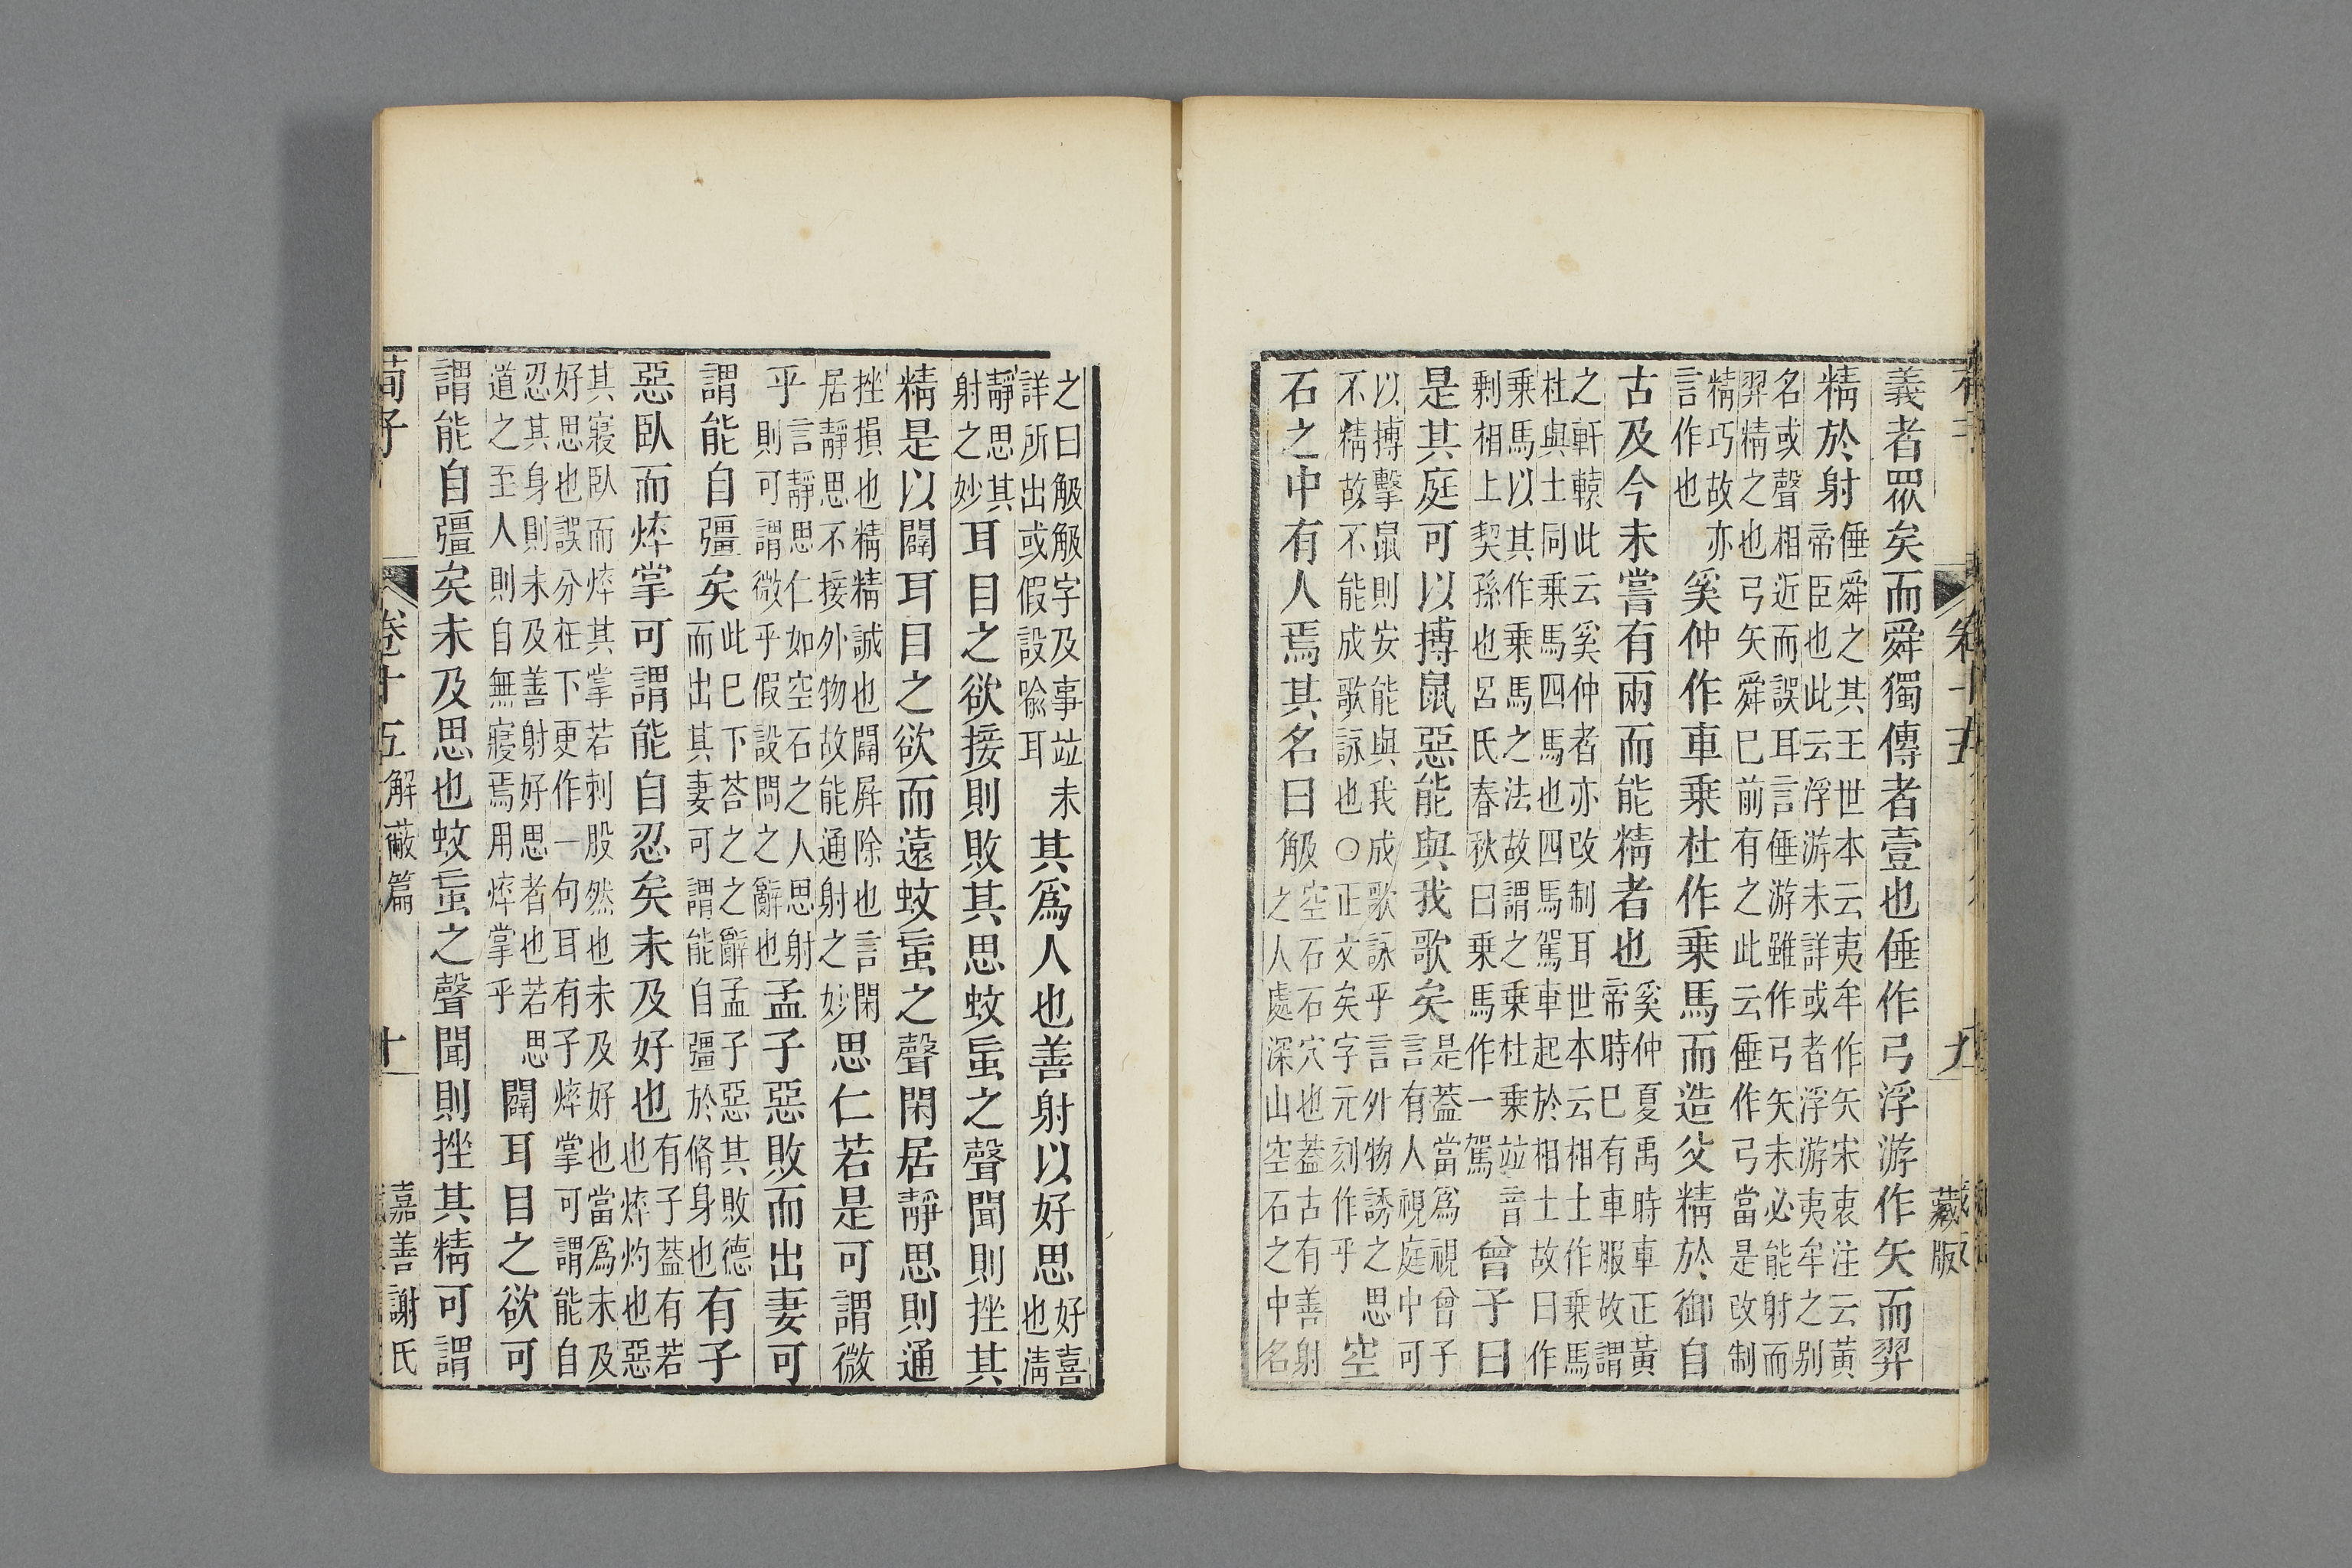 卷十五 九 藏版
義者眾矣而舜獨傳者壹也倕作弓浮游作矢而羿
精於射倕舜之其王世本云夷牟作矢宋衷注云黃
帝臣也此云浮游未詳或者浮游夷牟之别
名或聲相近而誤耳言倕游雖作弓矢未必能射而
羿精之也弓矢舜巳前有之此云倕作弓當是改制
精巧故亦
言作也奚仲作車乘杜作乘馬而造父精於御自
古及今未嘗有兩而能精者也奚仲夏禹時車正黃
帝時巳有車服故謂
之軒轅此云奚仲者亦改制耳世本云相土作乘馬
杜與土同乘馬四馬也四馬駕車起於相土故曰作
乘馬以其作乘馬之法故謂之乘杜乘竝音
剩相上契孫也呂氏春秋曰乘馬作一駕曾子曰
是其庭可以搏鼠惡能與我歌矣是蓋當爲視曾子
言有人視庭中可
以搏擊鼠則安能與我成歌詠乎言外物誘之思
不精故不能成歌詠也○正文矣字元刻作乎空
石之中有人焉其名曰觙空石石穴也蓋古有善射
之人處深山空石之中名
之曰觙觙字及事竝未
詳所出或假設喻耳其爲人也善射以好思好喜
也淸
靜思其
射之妙耳目之欲接則敗其思蚊䖟之聲聞則挫其
精是以闢耳目之欲而遠蚊䖟之聲閑居靜思則通
挫損也精精誠也闢屛除也言閑
居靜思不接外物故能通射之妙思仁若是可謂微
乎言靜思仁如空石之人思射
則可謂微乎假設問之辭也孟子惡敗而出妻可
謂能自彊矣此巳下荅之之辭孟子惡其敗德
而出其妻可謂能自彊於脩身也有子
惡臥而焠掌可謂能自忍矣未及好也有子蓋有若
也焠灼也惡
其寢臥而焠其掌若刺股然也未及好也當爲未及
好思也誤分在下更作一句耳有子焠掌可謂能自
忍其身則未及善射好思者也若思
道之至人則自無寢焉用焠掌乎闢耳目之欲可
謂能自彊矣未及思也蚊䖟之聲聞則挫其精可謂
荀子 卷十五 解蔽篇 十 嘉善謝氏